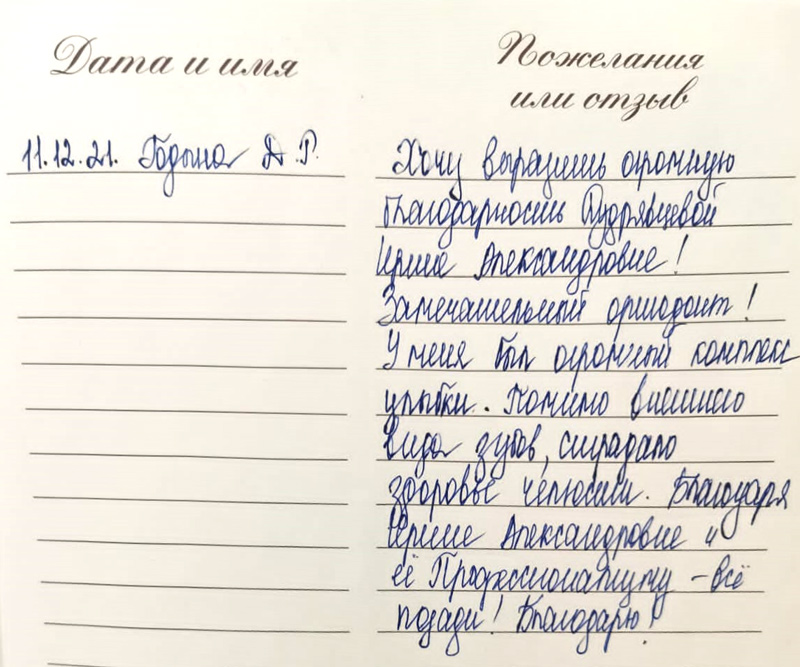 Дата и имя
Пожелания
или отзыв
11.12.21. Годына Д.Г.
Хочу выразить огромную
благодарность Кудрявцевой
Ирине Александровне!
Замечательный ортодонт!
У меня был огромный комплекс
улыбки. Помимо внешнего
вида зубов, страдало
здоровье челюсти. Благодаря
Ирине Александровне и
её Профессионализму - всё
позади! Благодарю!